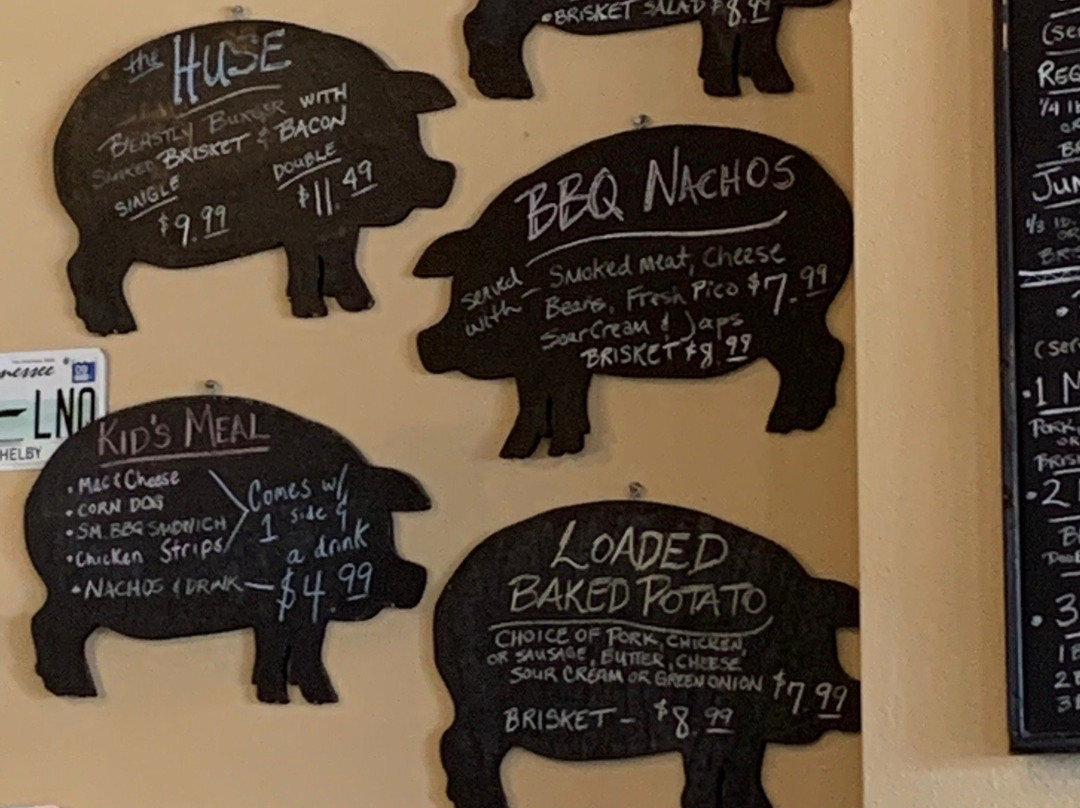 the HUSE
BEASTLY BURGER WITH
SMOKED BRISKET & BACON
SINGLE DOUBLE
$9.99 $11.49
• BRISKET SALAD $8.99
BBQ NACHOS
served with – Smoked meat, Cheese
Beans, Fresh Pico $7.99
Sour Cream & Japs
BRISKET $8.99
nessee
LNO
HELBY
KID'S MEAL
• Mac & Cheese
• CORN DOG
• SM. BBQ SANDWICH
• Chicken Strips
Comes w/
1 side &
a drink
• NACHOS & DRINK — $4.99
LOADED
BAKED POTATO
CHOICE OF PORK, CHICKEN,
OR SAUSAGE, BUTTER, CHEESE
SOUR CREAM OR GREEN ONION $7.99
BRISKET – $8.99
(Ser
REG
1/4 lb
OR
BR
JUM
1/3 lb.
OR
BRS
(ser
• 1 M
PORK
OR
BRIS
• 2
• 3
1
2
3